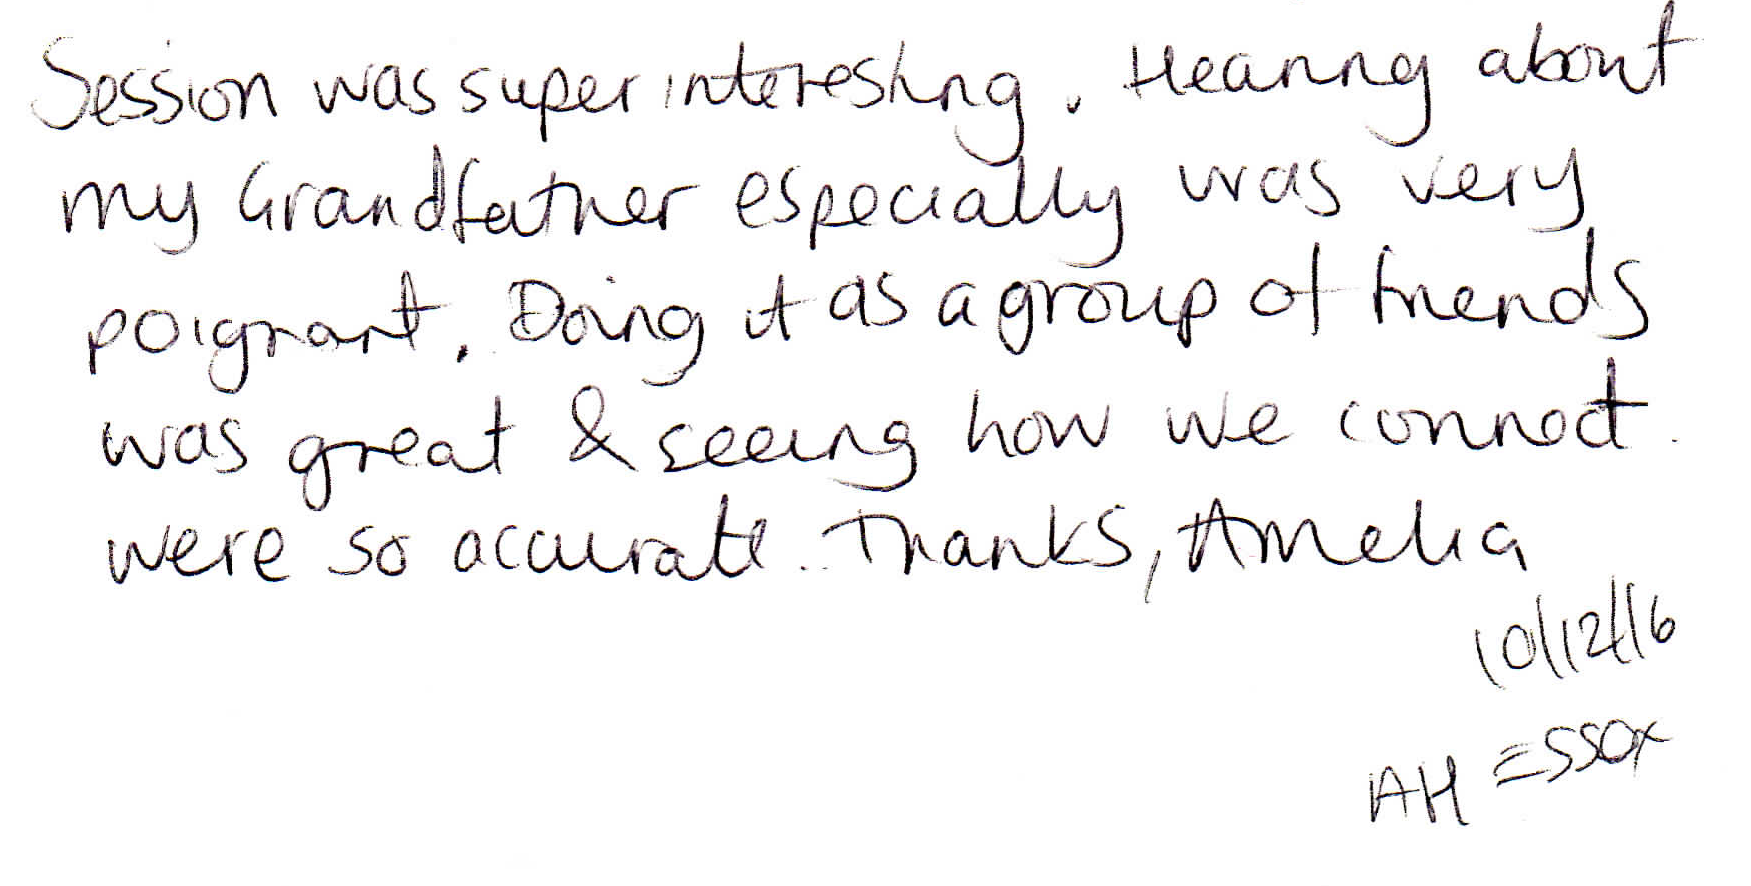 Session was super interesting. Hearing about
my Grandfather especially was very
poignant. Doing it as a group of friends
was great & seeing how we connect.
were so accurate. Thanks, Amelia
10/12/16
AH Essex